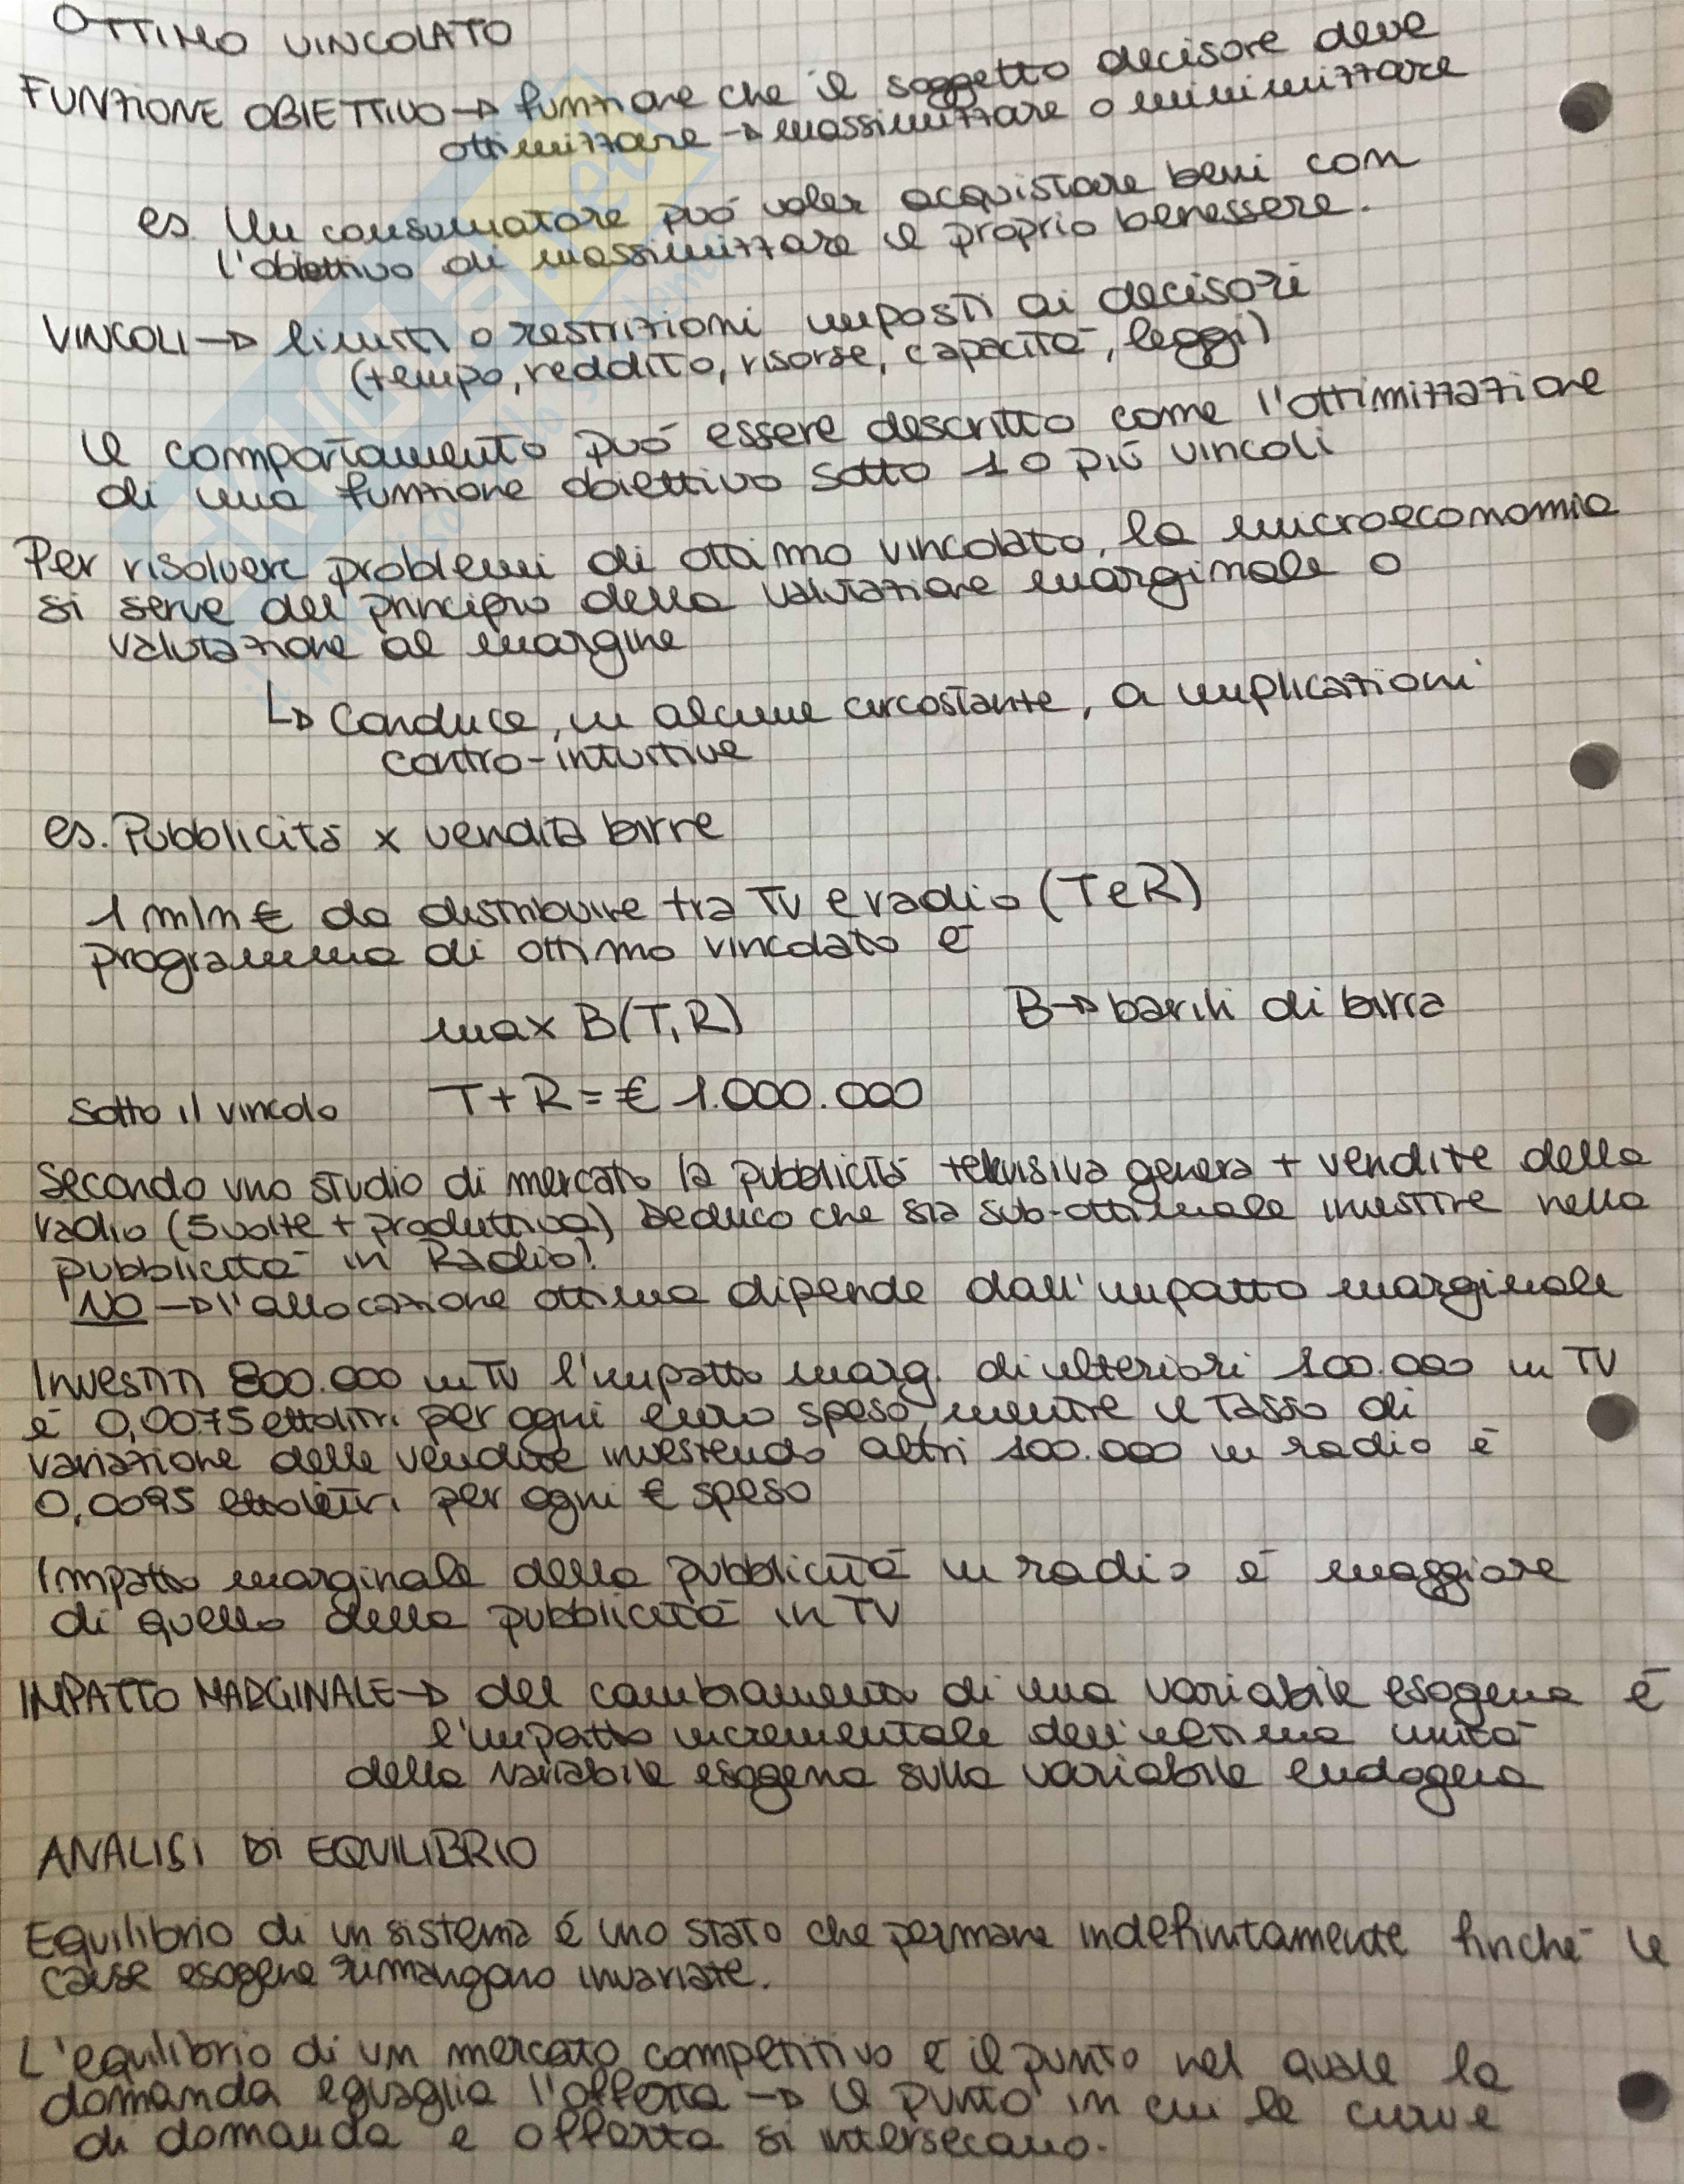 OTTIMO VINCOLATO
FUNZIONE OBIETTIVO → funzione che il soggetto decisore deve
ottimizzare → massimizzare o minimizzare
es. Un consumatore può voler acquistare beni con
l'obiettivo di massimizzare il proprio benessere.
VINCOLI → limiti o restrizioni imposti ai decisori
(tempo, reddito, risorse, capacità, leggi)
Il comportamento può essere descritto come l'ottimizzazione
di una funzione obiettivo sotto 1 o più vincoli
Per risolvere problemi di ottimo vincolato, la microeconomia
si serve del principio della valutazione marginale o
valutazione al margine
↳ Conduce, in alcune circostanze, a implicazioni
contro-intuitive
es. Pubblicità x vendita birre
1 mln € da distribuire tra TV e radio (T e R)
programma di ottimo vincolato è
max B(T,R) B → barili di birra
Sotto il vincolo T + R = € 1.000.000
Secondo uno studio di mercato la pubblicità televisiva genera + vendite della
radio (5 volte + produttiva) Deduco che sia sub-ottimale investire nella
pubblicità in Radio?
NO → l'allocazione ottima dipende dall'impatto marginale
Investiti 800.000 in TV l'impatto marg. di ulteriori 100.000 in TV
è 0,0075 ettolitri per ogni euro speso, mentre il tasso di
variazione delle vendite investendo altri 100.000 in radio è
0,0095 ettolitri per ogni € speso
Impatto marginale della pubblicità in radio è maggiore
di quello della pubblicità in TV
IMPATTO MARGINALE → del cambiamento di una variabile esogena è
l'impatto incrementale dell'ultima unità
della variabile esogena sulla variabile endogena
ANALISI DI EQUILIBRIO
Equilibrio di un sistema é uno stato che permane indefinitamente finché le
cause esogene rimangono invariate.
L'equilibrio di un mercato competitivo è il punto nel quale la
domanda eguaglia l'offerta → il punto in cui le curve
di domanda e offerta si intersecano.